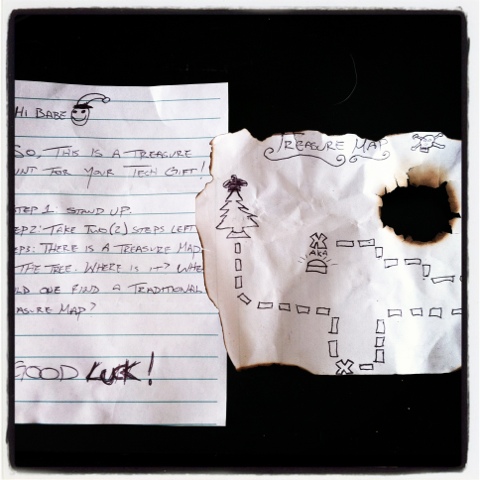 Hi BABE
SO, THIS IS A TREASURE
UNT FOR YOUR TECH GIFT!
TEP 1: STAND UP.
EP2: TAKE TWO(2) STEPS LEFT
EP3: THERE IS A TREASURE MAP
THE TREE. WHERE IS IT? WHE
LD ONE FIND A TRADITIONAL
EASURE MAP?
GOOD LUCK!
TREASURE MAP
X
AKA
X